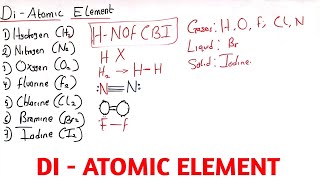 Di-Atomic Element
1) Hydrogen (H₂)
2) Nitrogen (N₂)
3) Oxygen (O₂)
4) Fluorine (F₂)
5) Chlorine (Cl₂)
6) Bromine (Br₂)
7) Iodine (I₂)
H-NOFCBI
H X
H₂ → H-H
N≡N
F-F
Gases: H, O, F, Cl, N
Liquid: Br
Solid: Iodine.
DI - ATOMIC ELEMENT